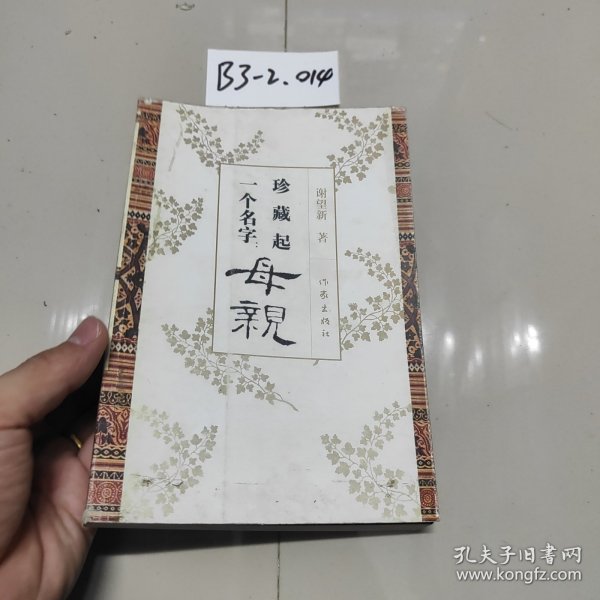 B3-2.014
谢望新 著
作家出版社
珍藏起
一个名字:
母親
孔夫子旧书网
www.kongfz.com